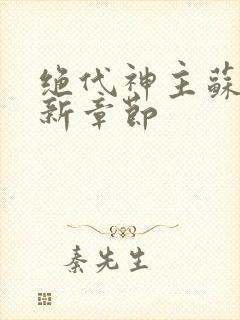 绝代神主蘇
新章節
秦先生